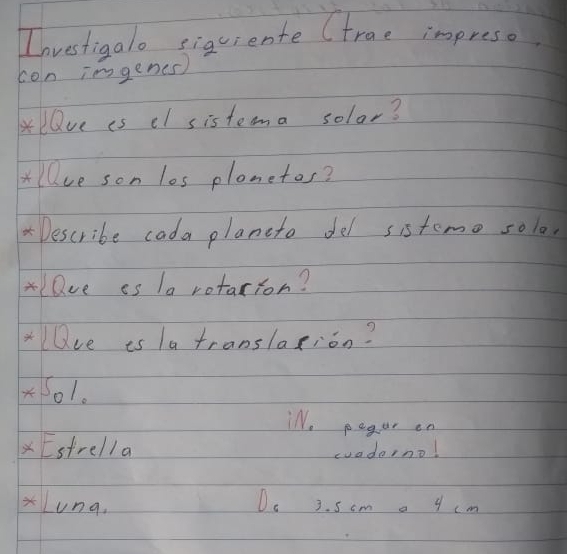 Investigalo siguiente (trae impreso,
con imgenes)
*¿Que es el sistema solar?
*¿Que son los planetas?
*Describe cada planeta del sistema solar
*¿Que es la rotacion?
*¿Que es la translación?
*Sol.
¡No pegar en
*Estrella
cuaderno!
*Luna.
De 3.5 cm a 4 cm